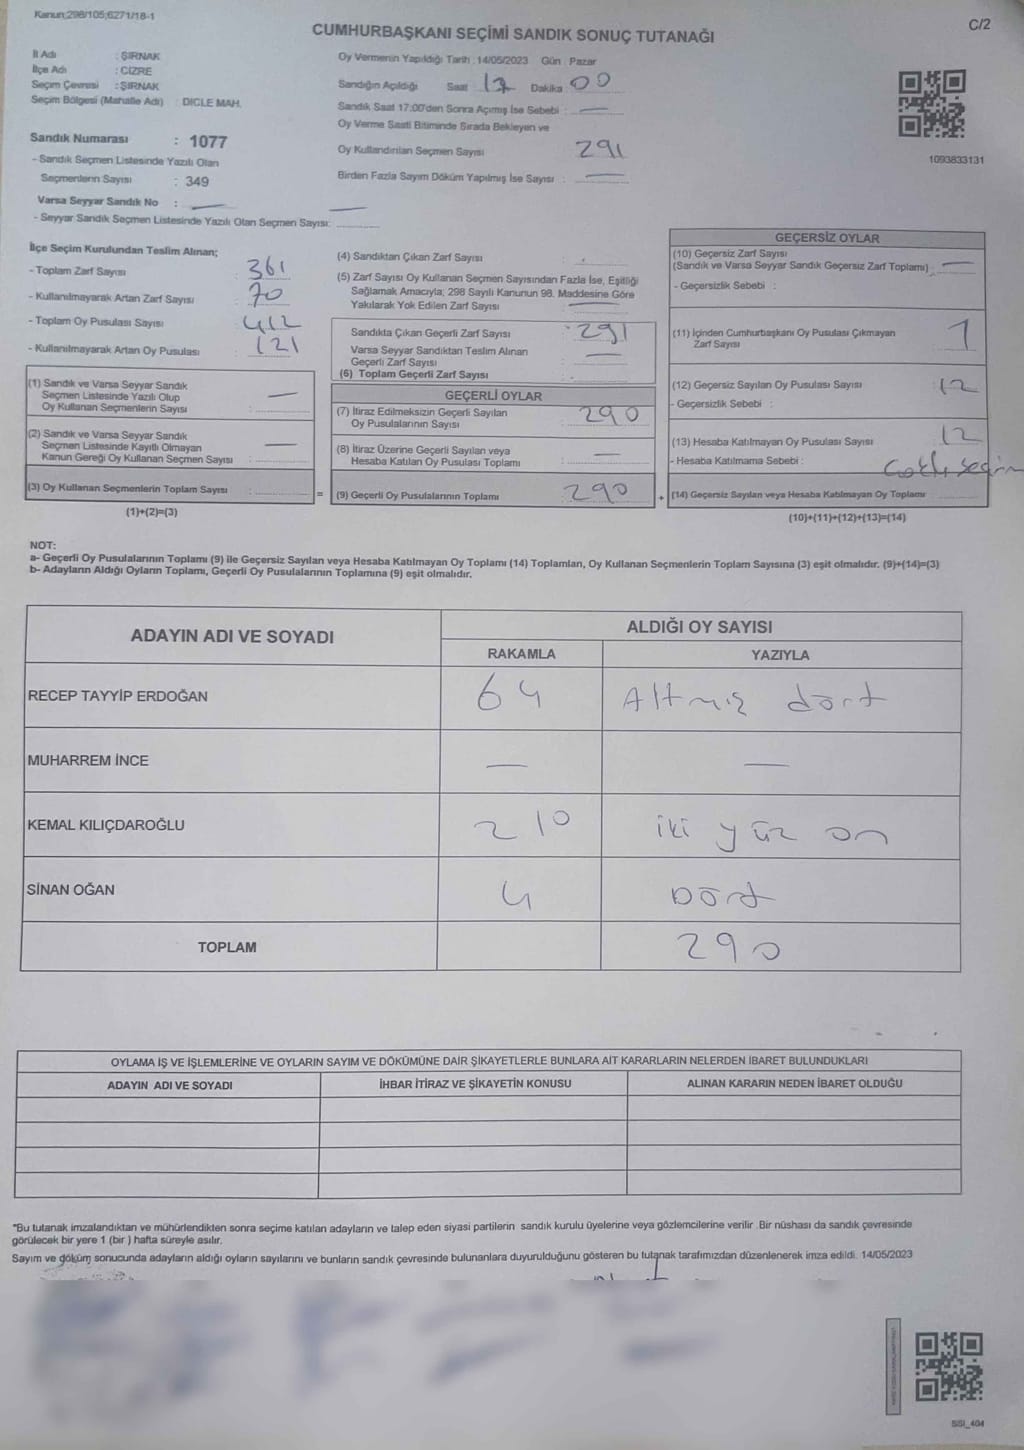 Kanun;298/105;6271/18-1
C/2
CUMHURBAŞKANI SEÇİMİ SANDIK SONUÇ TUTANAĞI
İl Adı : ŞIRNAK
İlçe Adı : CİZRE
Seçim Çevresi : ŞIRNAK
Seçim Bölgesi (Mahalle Adı) : DICLE MAH.
Sandık Numarası : 1077
- Sandık Seçmen Listesinde Yazılı Olan
Seçmenlerin Sayısı : 349
Varsa Seyyar Sandık No : —
- Seyyar Sandık Seçmen Listesinde Yazılı Olan Seçmen Sayısı: —
Oy Vermenin Yapıldığı Tarih : 14/05/2023 Gün : Pazar
Sandığın Açıldığı Saat 17 Dakika 00
Sandık Saat 17:00'den Sonra Açımış İse Sebebi : —
Oy Verme Saati Bitiminde Sırada Bekleyen ve
Oy Kullandırılan Seçmen Sayısı 291
Birden Fazla Sayım Döküm Yapılmış İse Sayısı : —
1093833131
İlçe Seçim Kurulundan Teslim Alınan;
- Toplam Zarf Sayısı : 361
- Kullanılmayarak Artan Zarf Sayısı : 70
- Toplam Oy Pusulası Sayısı : 412
- Kullanılmayarak Artan Oy Pusulası : 121
(1) Sandık ve Varsa Seyyar Sandık
Seçmen Listesinde Yazılı Olup
Oy Kullanan Seçmenlerin Sayısı : —
(2) Sandık ve Varsa Seyyar Sandık
Seçmen Listesinde Kayıtlı Olmayan
Kanun Gereği Oy Kullanan Seçmen Sayısı : —
(3) Oy Kullanan Seçmenlerin Toplam Sayısı :
(1)+(2)=(3)
(4) Sandıktan Çıkan Zarf Sayısı :
(5) Zarf Sayısı Oy Kullanan Seçmen Sayısından Fazla İse, Eşitliği
Sağlamak Amacıyla; 298 Sayılı Kanunun 98. Maddesine Göre
Yakılarak Yok Edilen Zarf Sayısı : —
Sandıkta Çıkan Geçerli Zarf Sayısı : 291
Varsa Seyyar Sandıktan Teslim Alınan
Geçerli Zarf Sayısı : —
(6) Toplam Geçerli Zarf Sayısı :
GEÇERLİ OYLAR
(7) İtiraz Edilmeksizin Geçerli Sayılan
Oy Pusulalarının Sayısı : 290
(8) İtiraz Üzerine Geçerli Sayılan veya
Hesaba Katılan Oy Pusulası Toplamı : —
= (9) Geçerli Oy Pusulalarının Toplamı : 290 +
GEÇERSİZ OYLAR
(10) Geçersiz Zarf Sayısı
(Sandık ve Varsa Seyyar Sandık Geçersiz Zarf Toplamı) : —
- Geçersizlik Sebebi :
(11) İçinden Cumhurbaşkanı Oy Pusulası Çıkmayan
Zarf Sayısı : 1
(12) Geçersiz Sayılan Oy Pusulası Sayısı : 12
- Geçersizlik Sebebi :
(13) Hesaba Katılmayan Oy Pusulası Sayısı : 12
- Hesaba Katılmama Sebebi :
(14) Geçersiz Sayılan veya Hesaba Katılmayan Oy Toplamı
(10)+(11)+(12)+(13)=(14)
NOT:
a- Geçerli Oy Pusulalarının Toplamı (9) ile Geçersiz Sayılan veya Hesaba Katılmayan Oy Toplamı (14) Toplamları, Oy Kullanan Seçmenlerin Toplam Sayısına (3) eşit olmalıdır. (9)+(14)=(3)
b- Adayların Aldığı Oyların Toplamı, Geçerli Oy Pusulalarının Toplamına (9) eşit olmalıdır.
ADAYIN ADI VE SOYADI ALDIĞI OY SAYISI
RAKAMLA YAZIYLA
RECEP TAYYİP ERDOĞAN 64 Altmış dört
MUHARREM İNCE — —
KEMAL KILIÇDAROĞLU 210 iki yüz on
SİNAN OĞAN 4 Dört
TOPLAM 290
OYLAMA İŞ VE İŞLEMLERİNE VE OYLARIN SAYIM VE DÖKÜMÜNE DAİR ŞİKAYETLERLE BUNLARA AİT KARARLARIN NELERDEN İBARET BULUNDUKLARI
ADAYIN ADI VE SOYADI İHBAR İTİRAZ VE ŞİKAYETİN KONUSU ALINAN KARARIN NEDEN İBARET OLDUĞU
*Bu tutanak imzalandıktan ve mühürlendikten sonra seçime katılan adayların ve talep eden siyasi partilerin sandık kurulu üyelerine veya gözlemcilerine verilir .Bir nüshası da sandık çevresinde
görülecek bir yere 1 (bir ) hafta süreyle asılır.
Sayım ve döküm sonucunda adayların aldığı oyların sayılarını ve bunların sandık çevresinde bulunanlara duyurulduğunu gösteren bu tutanak tarafımızdan düzenlenerek imza edildi. 14/05/2023
SSI_404